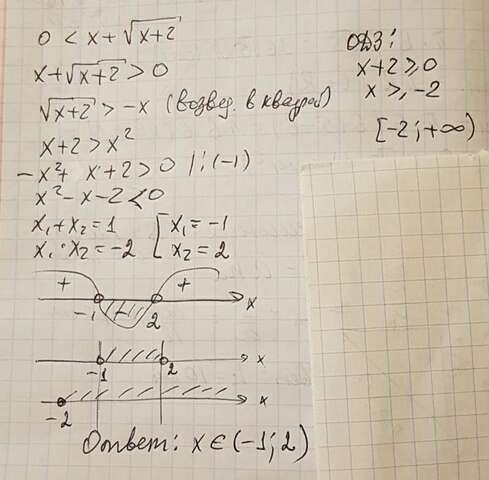 0 < x + √(x+2)
x + √(x+2) > 0
√(x+2) > -x (возвед. в квадрат)
x + 2 > x²
-x² + x + 2 > 0 | : (-1)
x² - x - 2 < 0
x₁ + x₂ = 1 [ x₁ = -1
x₁ · x₂ = -2 [ x₂ = 2
ОДЗ:
x + 2 ≥ 0
x ≥ -2
[-2; +∞)
+ - + x
-1 2
x
-1 2
x
-2
Ответ: x ∈ (-1; 2)